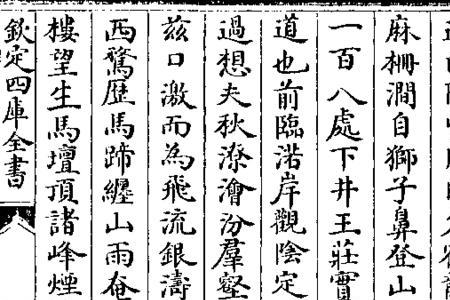 麻柵澗自獅子鼻登山
一百八處下井王莊實
道也前臨涽岸觀陰定
過想夫秋潦瀹汾羣壑
茲口激而為飛流銀濤
西驚歴馬蹄纏山雨奄
樓望生馬壇頂諸峰煙
欽定四庫全書